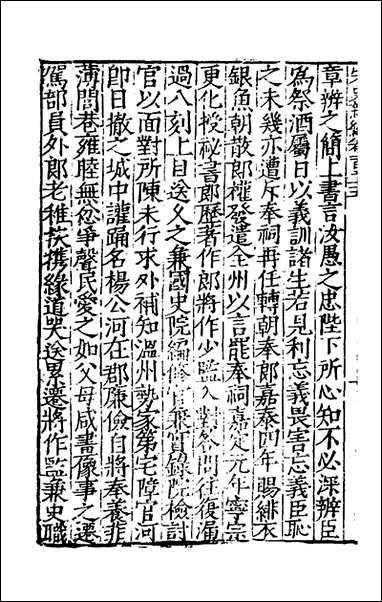 章辨之簡上書言汝愚之忠陛下所心知不必深辨臣
為祭酒屬日以義訓諸生若見利忘義畏害忘義臣恥
之未幾亦遭斥奉祠再任轉朝奉郎嘉泰四年賜緋衣
銀魚朝散郎權發遣全州以言罷奉祠嘉定元年寧宗
更化授秘書郎歷著作郎將作少監入對答問往復漏
過八刻上目送久之兼國史院編修官兼實錄院檢討
官以面對所陳未行求外補知溫州勢家第宅障官河
即日撤之城中讙踊名楊公河在郡廉儉自將奉養菲
薄閭巷雍睦無忿爭聲民愛之如父母咸畫像事之遷
駕部員外郎老稚扶擁緣道哭送累遷將作監兼史職